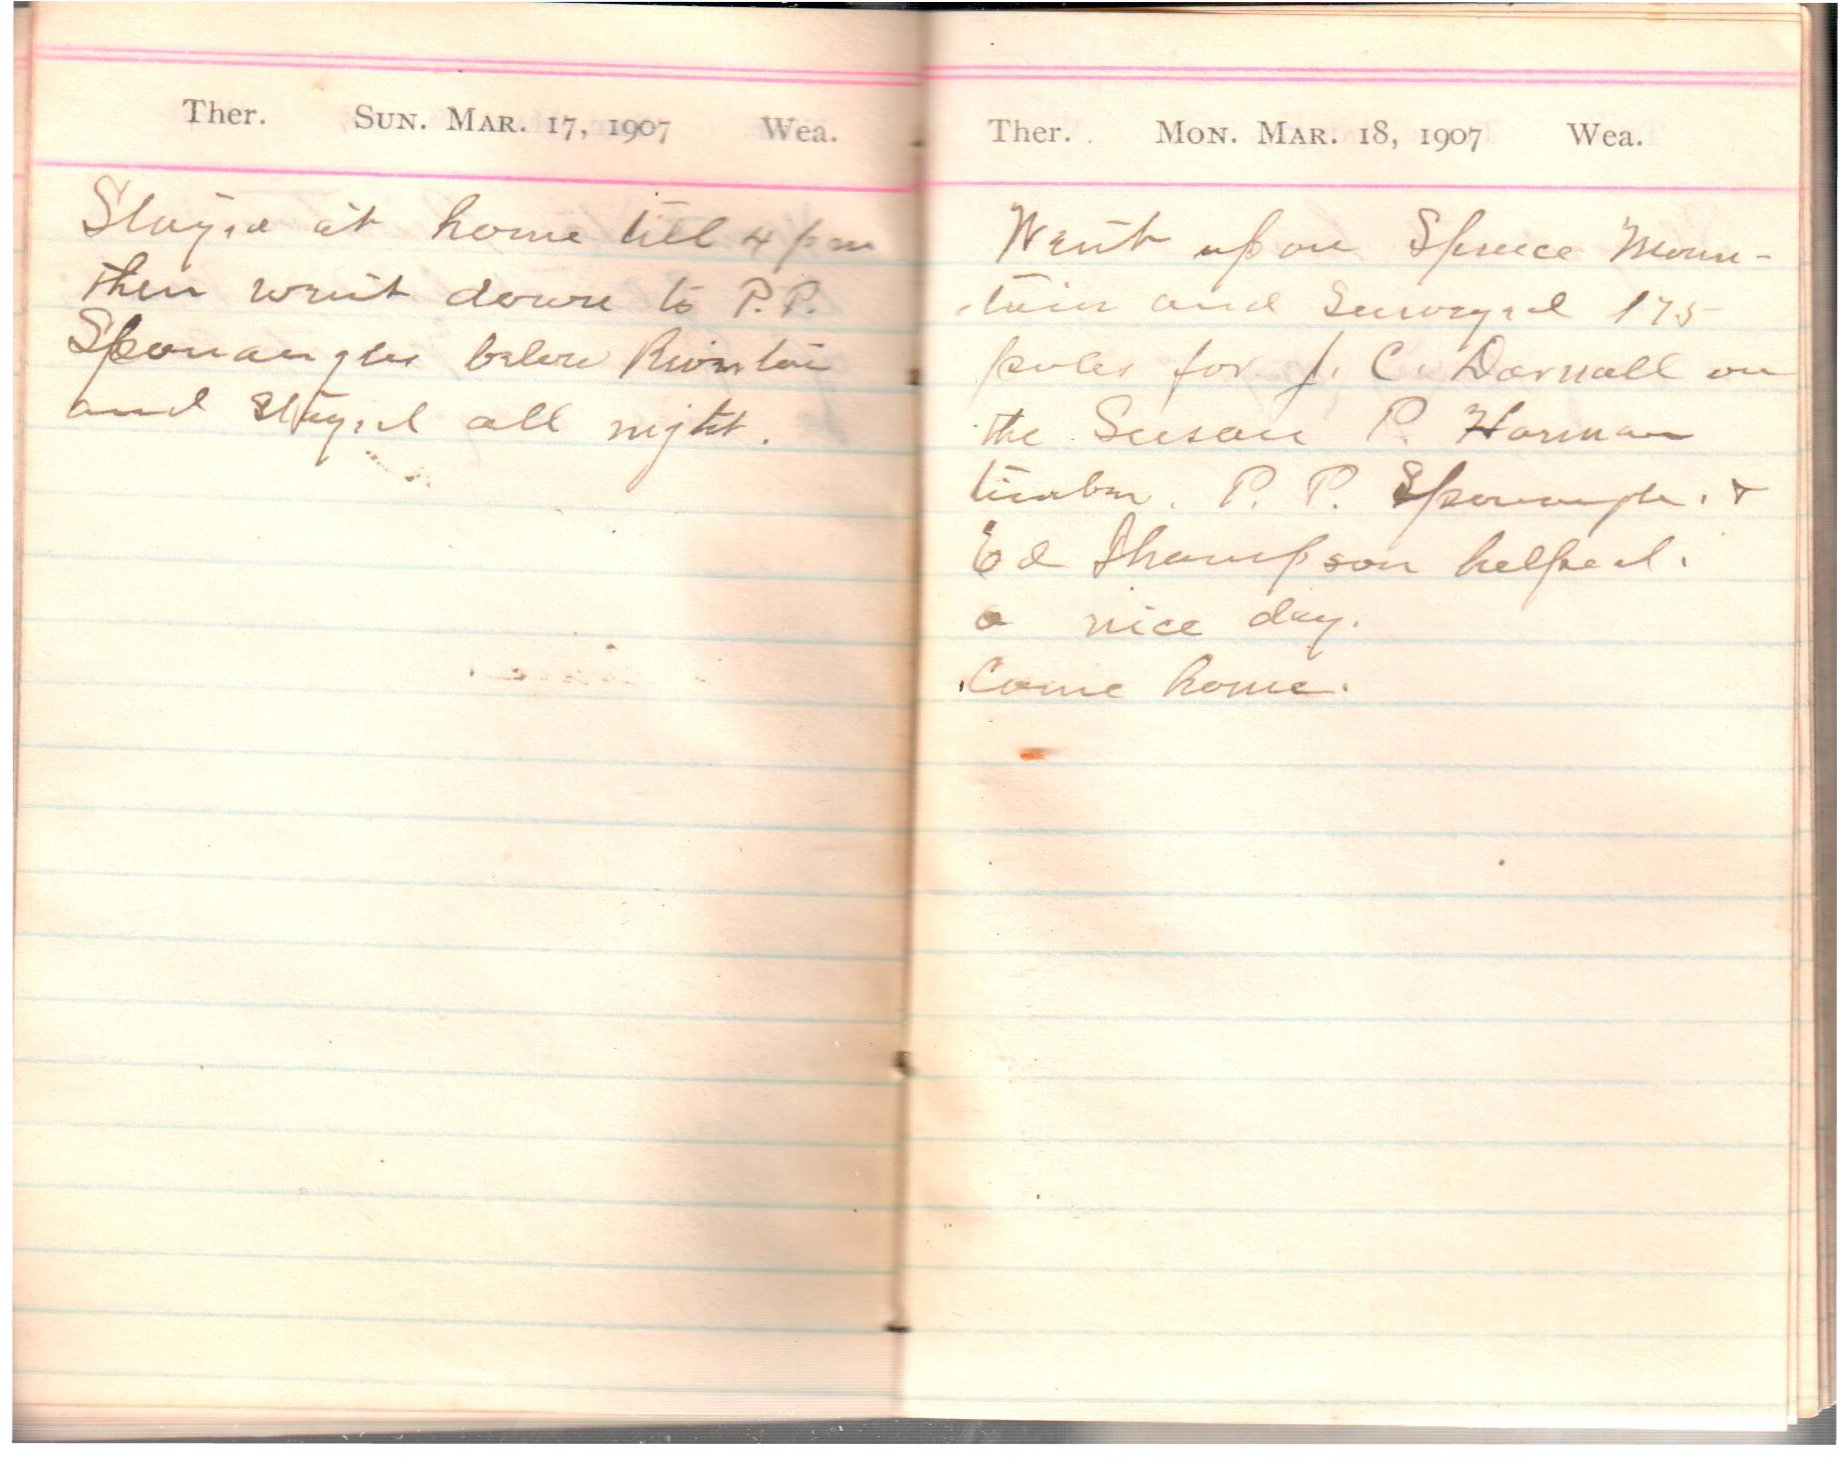 Ther. Sun. Mar. 17, 1907 Wea.
Stayed at home till 4 pm
then went down to P.P.
Sponaugles below Riverton
and stayed all night.
Ther. Mon. Mar. 18, 1907 Wea.
Went up on Spruce Moun-
tain and Surveyed 175
poles for J. C. Darnall on
the Susan P. Harman
timber. P. P. Sponaugle. &
Ed Thompson helped.
a nice day.
Come home.